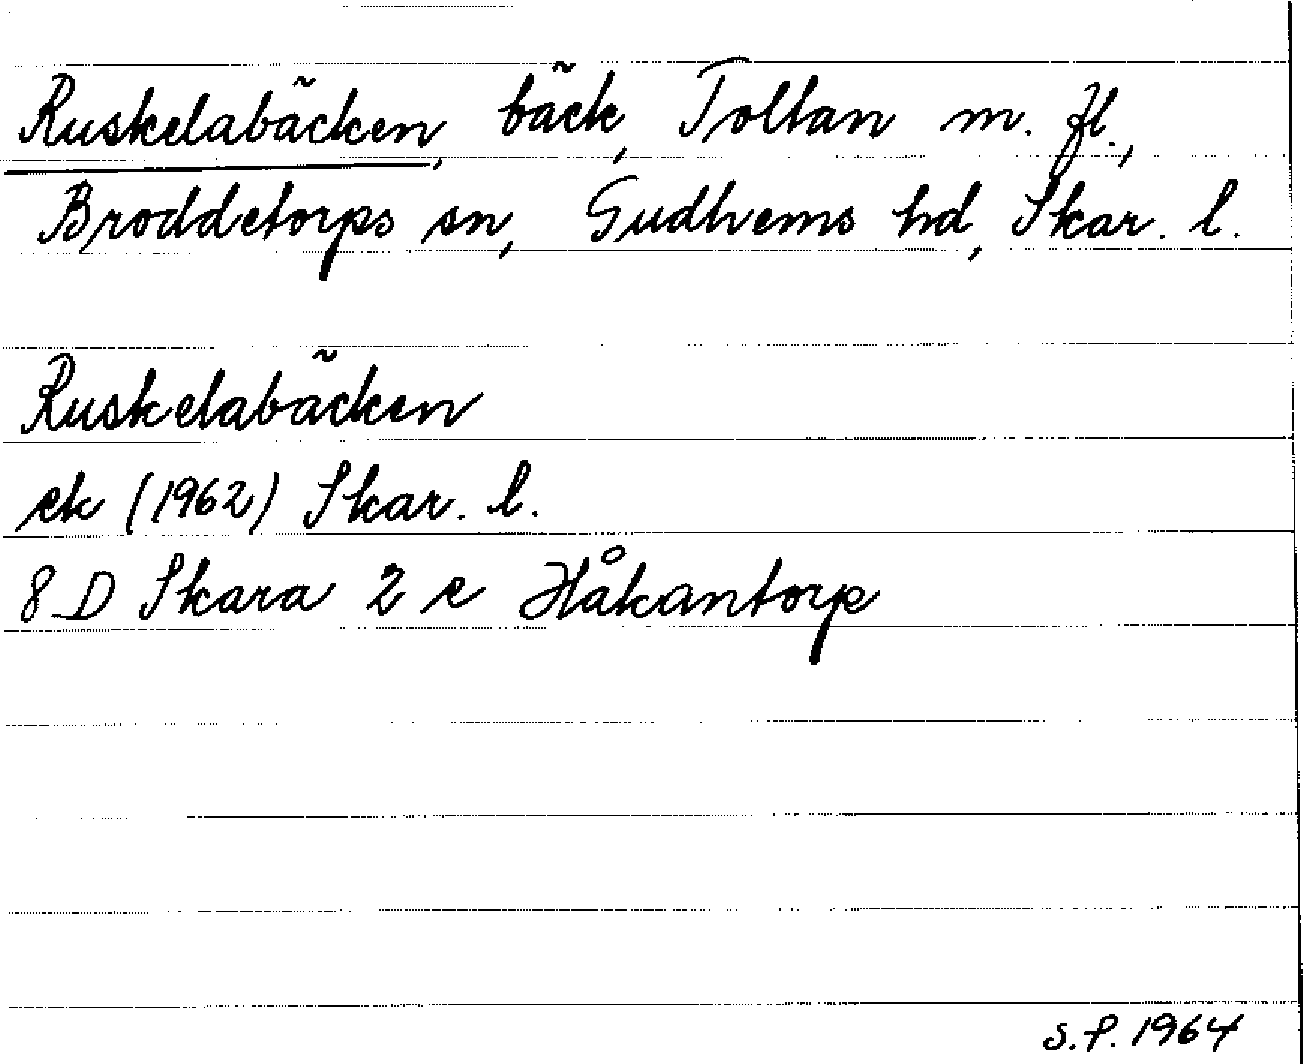 Ruskelabäcken, bäck, Tolltan m. fl.,
Broddetorps sn, Gudhems hd, Skar. l.
Ruskelabäcken
ek (1962) Skar. l.
8 D Skara 2 e Håkantorp
S.P. 1964